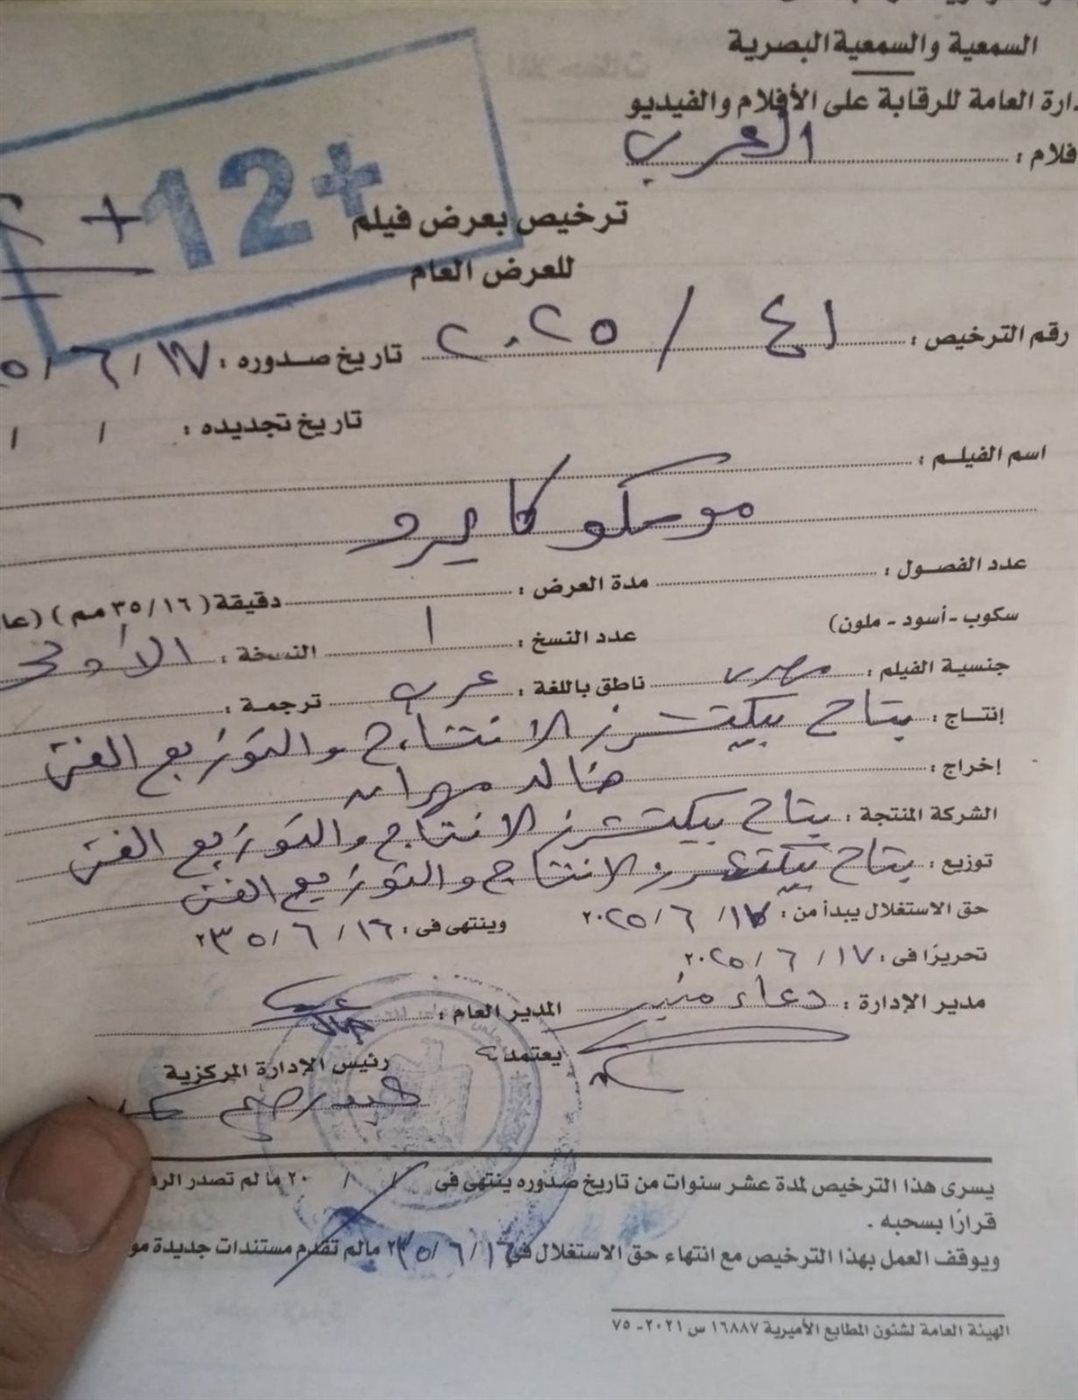 السمعية والسمعية البصرية
دارة العامة للرقابة على الأفلام والفيديو
فلام : العربي
12+
+
ترخيص بعرض فيلم
للعرض العام
رقم الترخيص : ٤١ / ٢٠٢٥ تاريخ صدوره : ١٧ / ٦ / ٥
تاريخ تجديده : / /
اسم الفيلم :
موسكو كايرو
عدد الفصول : مدة العرض : دقيقة ( ٣٥/١٦ مم ) (عا
سكوب - أسود - ملون) عدد النسخ : ١ النسخة : الأولى
جنسية الفيلم : مصرى ناطق باللغة : عربى ترجمة :
إنتاج : يتاح بيكتشرز الانتاج والتوزيع الفنى
إخراج : خالد مهران
الشركة المنتجة : يتاح بيكتشرز الانتاج والتوزيع الفنى
توزيع : يتاح بيكتشرز الانتاج والتوزيع الفنى
حق الاستغلال يبدأ من : ١٧ / ٦ / ٢٠٢٥ وينتهى فى : ١٦ / ٦ / ٢٠٣٥
تحريرًا فى : ١٧ / ٦ / ٢٠٢٥
مدير الإدارة : دعاء منير المدير العام :
يعتمد
رئيس الإدارة المركزية
يسرى هذا الترخيص لمدة عشر سنوات من تاريخ صدوره ينتهى فى / / ٢٠ مالم تصدر الرق
قرارًا بسحبه .
ويوقف العمل بهذا الترخيص مع انتهاء حق الاستغلال فى ١٦ / ٦ / ٢٠٣٥ مالم تقدم مستندات جديدة مو
الهيئة العامة لشئون المطابع الأميرية ١٦٨٨٧ س ٢٠٢١ - ٧٥